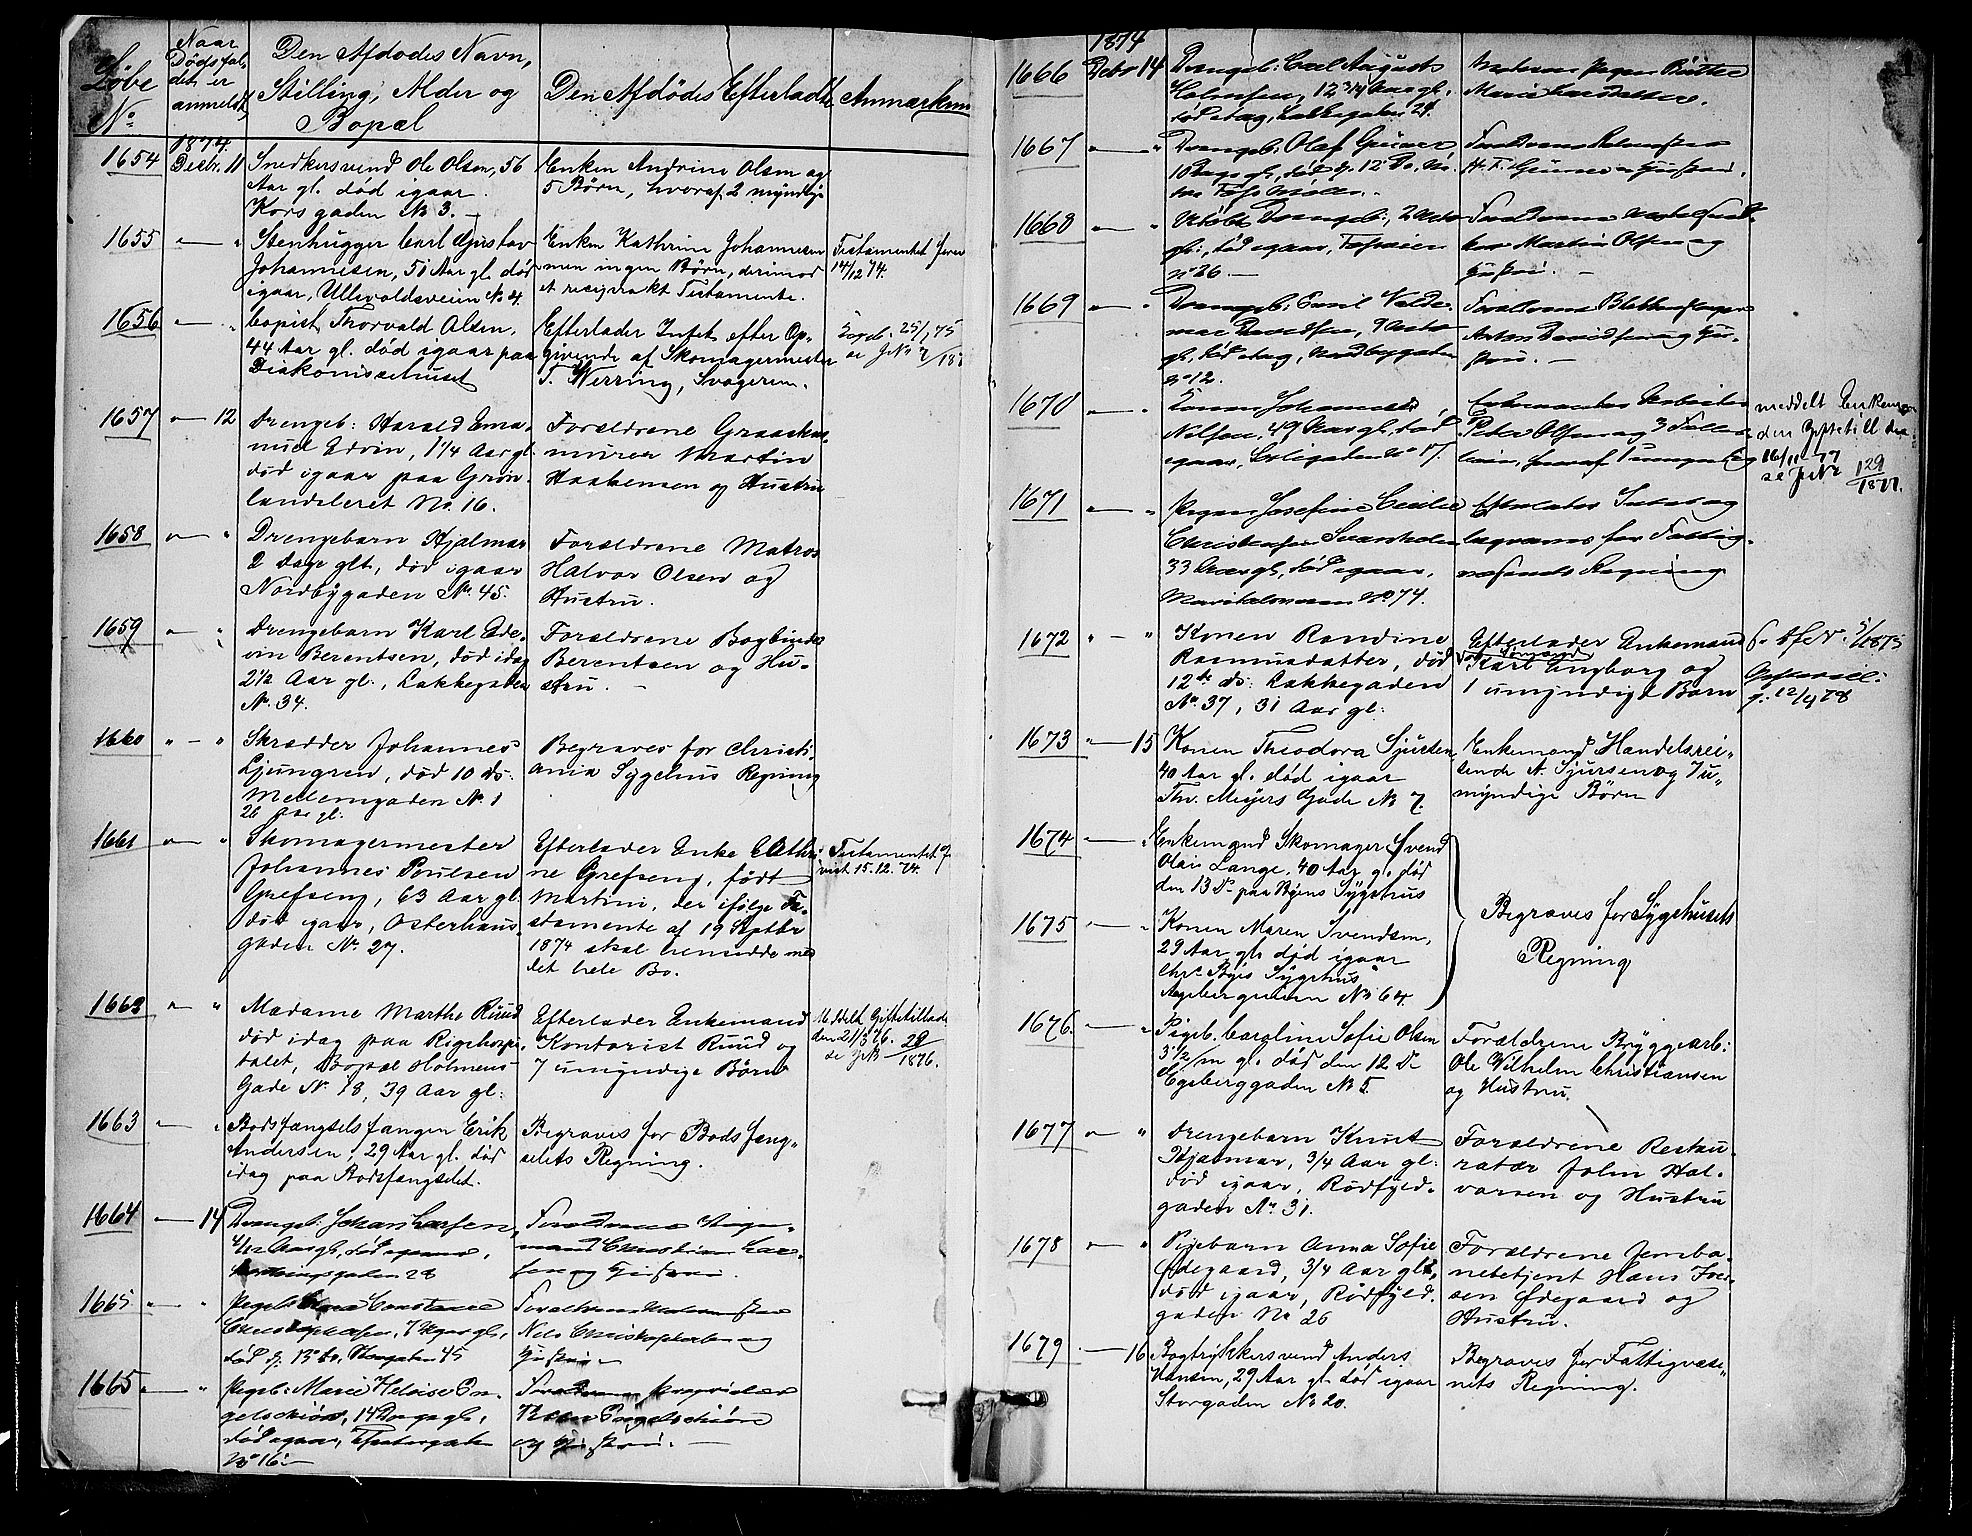 Løbe
No
Naar
Dødsfal-
det er
anmeldt
Den Afdødes Navn,
Stilling, Alder og
Bopæl
Den Afdødes Efterladte
Anmærkn
1874.
1654 Decbr. 11 Snedkersvend Ole Olsen, 56
Aar gl. død igaar
Korsgaden No 3.
Enken Andrine Olsen og
5 Børn, hvoraf 2 myndige
1655 Stenhugger Carl Gustav
Johannesen, 51 Aar gl. død
igaar, Ullevoldsveien No 4.
Enken Kathrine Johannesen
men ingen Børn, derimod
et reciprokt Testamente.
Testamentet
14/12 74.
1656 Copist Thorvald Olsen,
44 Aar gl. død igaar paa
Diakonissehuset
Efterlader Intet efter Op-
givende af Skomagermester
T. Werring, Svogeren.
25/1 75
se JNo
1657 12 Drengeb: Harald Ema-
nuel Edvin, 1 1/4 Aar gl
død igaar paa Grøn
landsleret No. 16.
Forældrene Graaste
murer Martin
Haakensen og Hustru
1658 Drengebarn Hjalmar
2 Dage glt, død igaar
Nordbygaden No. 45.
Forældrene Matros
Halvor Olsen og
Hustru.
1659 Drengebarn Karl Ede-
vin Berentsen, død idag
2 1/2 Aar gl., Lakkegaden
No. 34.
Forældrene Bogbinder
Berentsen og Hu-
stru.
1660 Skrædder Johannes
Ljungren, død 10 ds.
Mellemgaden No. 1
26 Aar gl.
Begraves for Christi
ania Sygehus Regning
1661 Skomagermester
Johannes Poulsen
Grefseng, 63 Aar gl.
død igaar, Osterhaus-
gaden No. 27.
Efterlader Enke Cathri
ne Grefseng, født
Martini, der ifølge Te-
stamente af 19 Septbr
1874 skal hensidde med
det hele Bo.
Testamentet
15.12.74.
1662 Madame Marthe Ruud
død idag paa Rigshospi
talet, Bopæl Holmens
Gade No. 18, 39 Aar gl:
Efterlader Enkemand
Kontorist Ruud og
7 umyndige Børn
Meddelt Giftetilladelse
den 21/3 76.
se JNo 29/1876.
1663 Bodsfængselsfangen Erik
Andersen, 29 Aar gl. død
idag paa Bodsfængselet.
Begraves for Bodsfæng-
selets Regning.
1664 14 Drengeb: Johan Larsen,
Aar gl, død
28
Forældrene
mand Christian Lar-
sen og Hustru.
1665 Pigeb. Constance
Christophersen, 7 Uger gl,
død d. 13 ds, Storgaden 45
Forældrene
Nels Christophersen og
Hustru
1665 Pigeb. Marie Heloise En-
gelschiøn, 14 Dage gl,
død igaar, Theatergaden
No 16
Forældrene
Engelschiøn
og Hustru.
1874
1666 Decbr 14 Drengeb: Carl August
Halvorsen, 12 3/4 Aar gl.
død idag, Lakkegaden 24.
Moderen Pigen
Marie Larsdatter.
1667 Drengeb. Olaf Grüner
1 Dags gl, død d. 12 Ds, No.
Forældrene
Grüner og Hustru.
1668 Udøbt Drengeb:, 2
gl:, død igaar, Tøyeien
No 26.
Forældrene
Martin Olsen og
Hustru.
1669 Drengeb: Emil Valde-
mar Davidsen, 9
gl, død idag, Nordbygaden
No 12.
Forældrene
Anton Davidsen og Hu-
stru.
1670 Konen Johanne
Nilsen, 49 Aar gl, død
igaar, No 17.
Enkemanden Arbeider
Peter Olsen og 3 Fælles
børn, hvoraf 1 umyndig
meddelt Enkeman
den Giftetill
16/11 77
se JNo 129/1877.
1671 Pigen Josefine Cecilie
Christensen Svanholm
33 Aar gl, død igaar,
No 74.
Efterlader Intet og
begraves for Fattig-
væsenets Regning
1672 Konen Randine
Rasmusdatter, død
12te ds: Lakkegaden
No. 37, 31 Aar gl:
Efterlader Enkemand
Sømand
Karl Engborg og
1 umyndigt Barn
5/1875
12/4 78
1673 15 Konen Theodora Sjursen
40 Aar gl. død igaar
Th. Meyers Gade No 7.
Enkemand Handelsrei-
sende A. Sjursen og 7 u-
myndige Børn
1674 Enkemand Skomager Svend
Olais Lange, 40 Aar gl. død
den 13 Ds paa Byens Sygehus
1675 Konen Maren Svendsen,
29 Aar gl. død igaar
Chra Byes Sygehus
Aagebergveien No 64.
Begraves for Sygehusets
Regning
1676. Pigeb. Caroline Sofie Olsen
3 1/2 m gl. død den 12 Ds
Egeberggaden No 5.
Forældrene Bryggearb:
Ole Wilhelm Christiansen
og Hustru.
1677 Drengebarn Knut
Hjalmar, 3/4 Aar gl:
død igaar, Rødfyld-
gaden No. 31.
Forældrene Restau-
ratør John Hal-
varsen og Hustru
1678 Pigebarn Anna Sofie
Ødegaard, 3/4 Aar glt,
død igaar, Rødfyld-
gaden No 26
Forældrene Jernba-
nebetjent Hans Iver-
sen Ødegaard og
Hustru.
1679 16 Bogtrykkersvend Anders
Hansen, 29 Aar gl. død igaar
Storgaden No 20.
Begraves for Fattigvæse-
nets Regning.